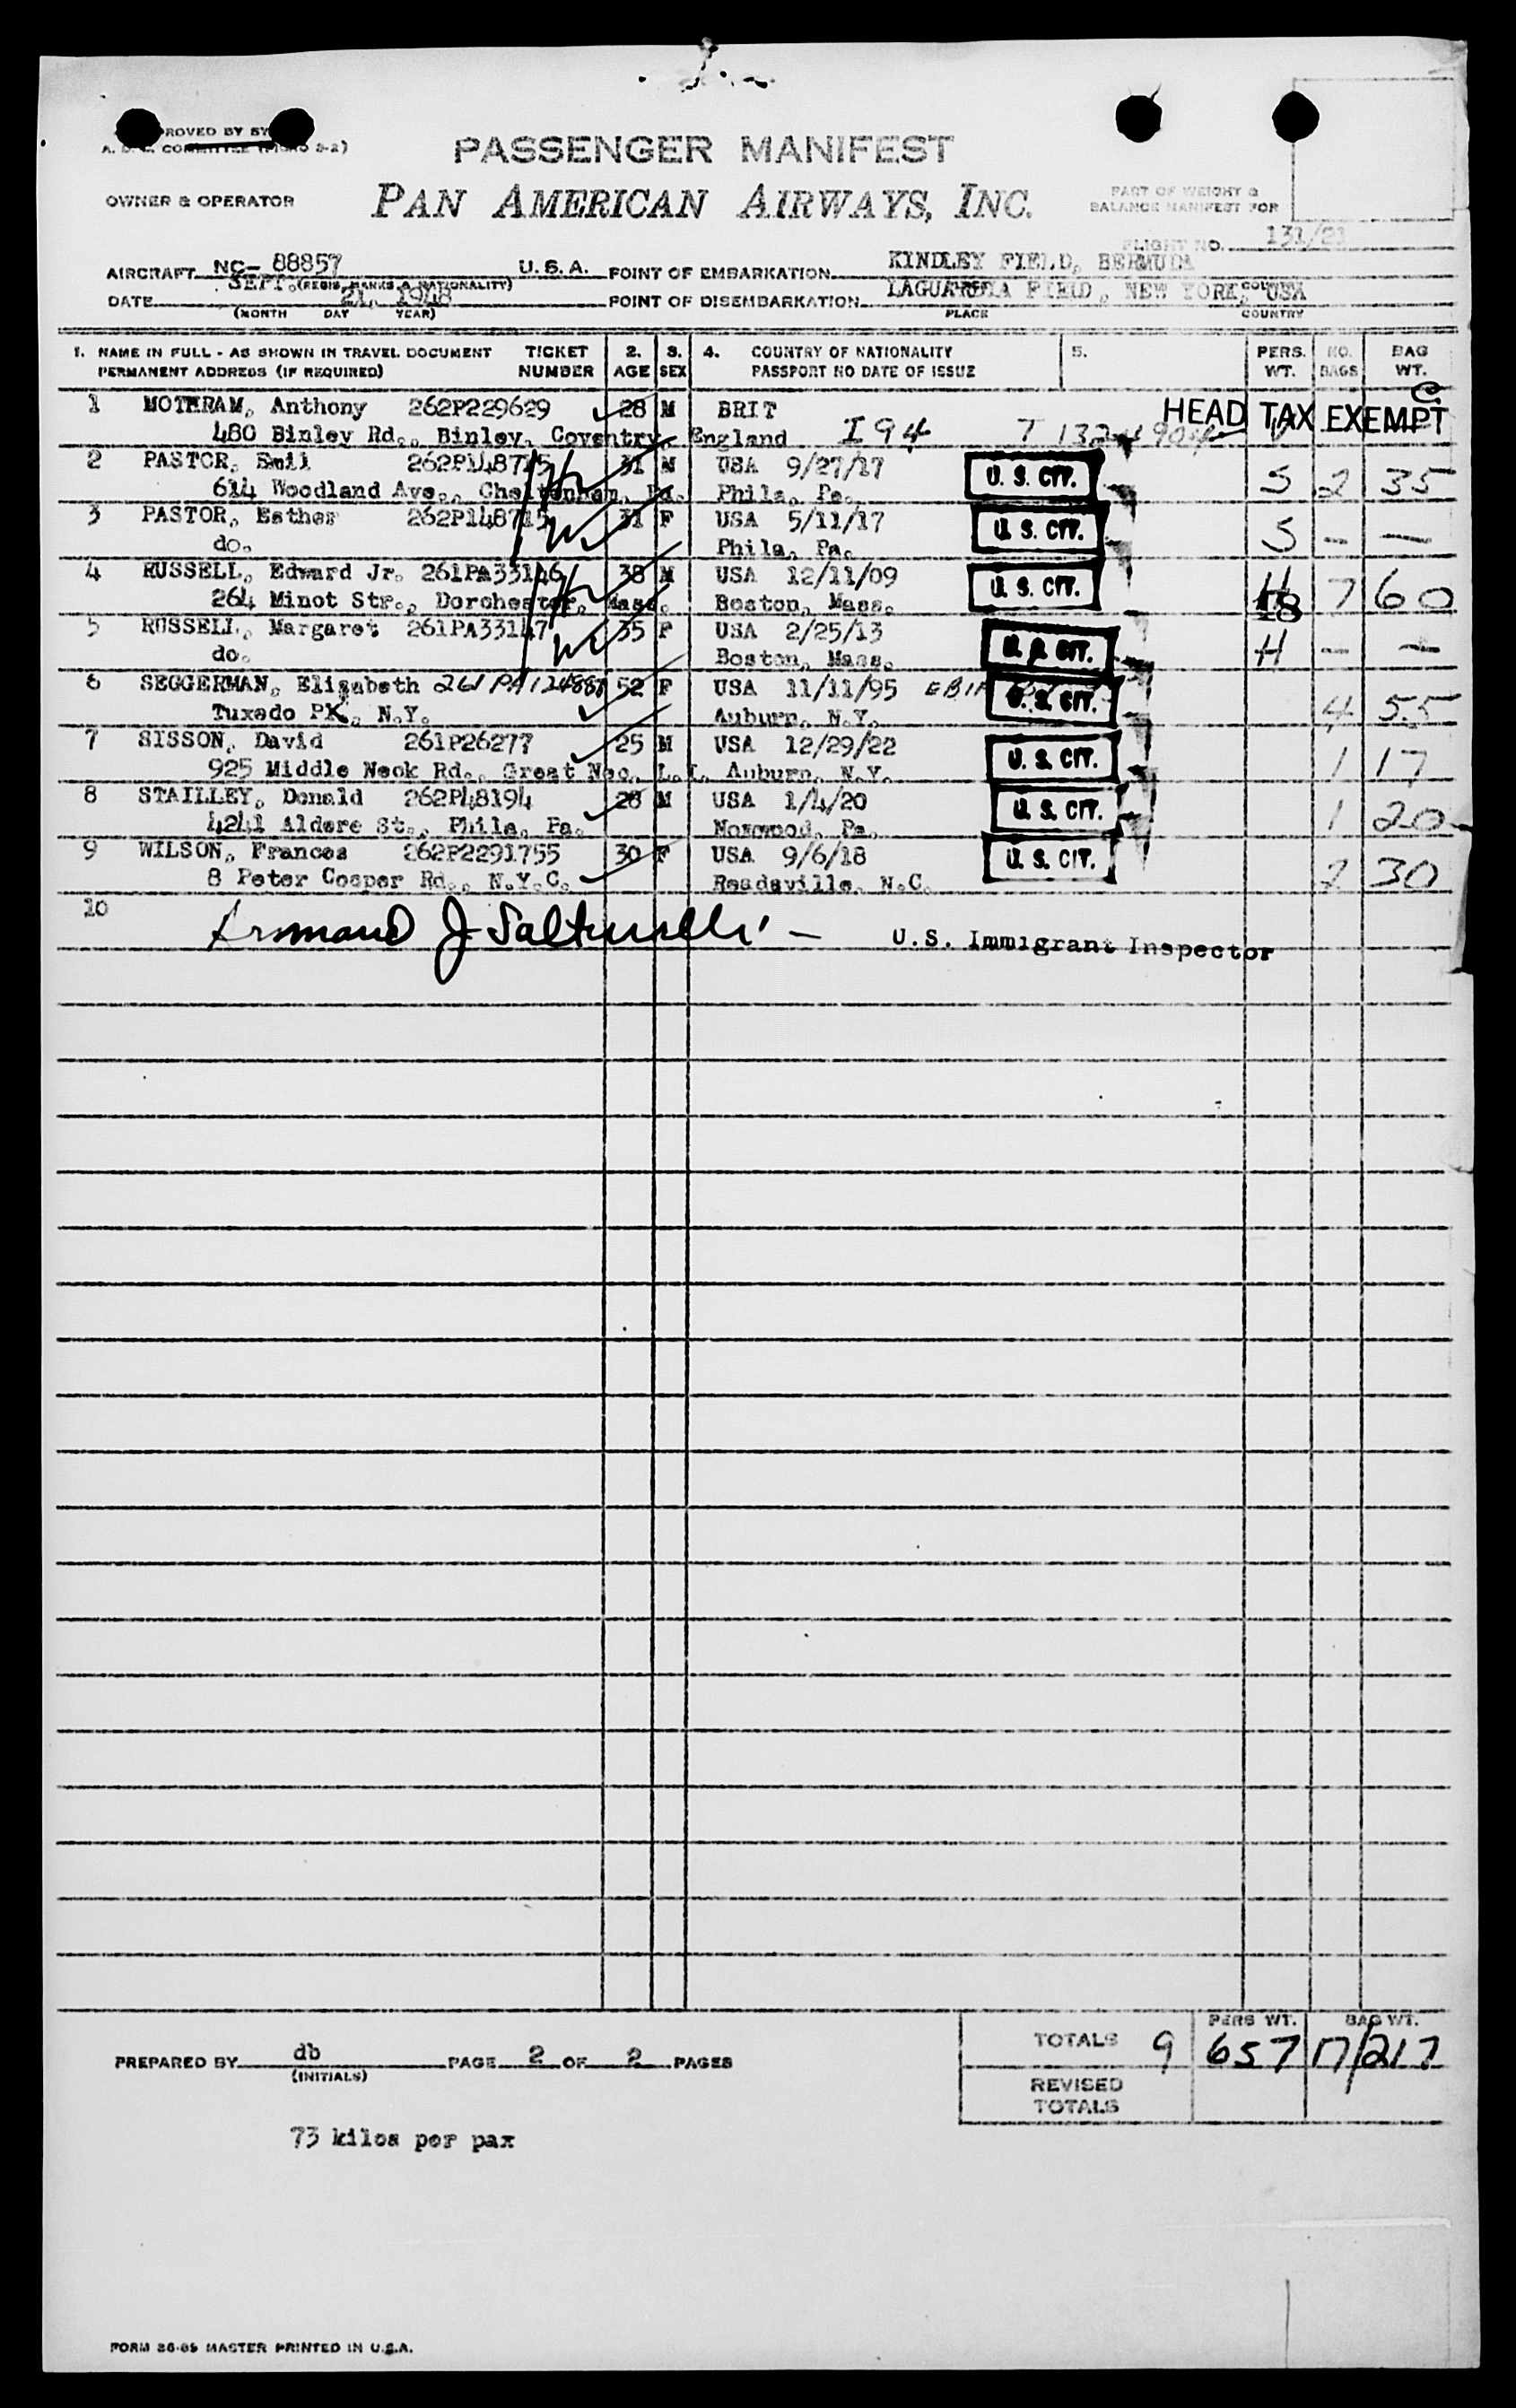 PASSENGER MANIFEST
OWNER & OPERATOR
PAN AMERICAN AIRWAYS, INC.
PART OF WEIGHT &
BALANCE MANIFEST FOR
FLIGHT NO. 131/21
AIRCRAFT NC- 88857 U.S.A. POINT OF EMBARKATION KINDLEY FIELD, BERMUDA
(REGIS. MARKS & NATIONALITY)
DATE SEPT. 21, 1948 POINT OF DISEMBARKATION LAGUARDIA FIELD, NEW YORK, USA
(MONTH DAY YEAR) PLACE COUNTRY
1. NAME IN FULL - AS SHOWN IN TRAVEL DOCUMENT TICKET 2. 3. 4. COUNTRY OF NATIONALITY 5. PERS. NO. BAG
PERMANENT ADDRESS (IF REQUIRED) NUMBER AGE SEX PASSPORT NO DATE OF ISSUE WT. BAGS WT.
1 MOTHRAM, Anthony 262P229629 28 M BRIT HEAD TAX EXEMPT
480 Binley Rd., Binley, Coventry, England I 94
2 PASTOR, Emil 262P148715 31 M USA 9/27/17 U. S. CIT. S 2 35
614 Woodland Ave., Cheltenham, Pa. Phila, Pa.
3 PASTOR, Esther 262P148715 31 F USA 5/11/17 U. S. CIT. S - -
do. Phila, Pa.
4 RUSSELL, Edward Jr. 261PA33146 38 M USA 12/11/09 U. S. CIT. 7 60
264 Minot Str., Dorchester, Mass. Boston, Mass.
5 RUSSELL, Margaret 261PA33147 35 F USA 2/25/13 U. S. CIT. H - -
do. Boston, Mass.
6 SEGGERMAN, Elizabeth 52 F USA 11/11/95 U. S. CIT. 4 55
Tuxedo PK, N.Y. Auburn, N.Y.
7 SISSON, David 261P26277 25 M USA 12/29/22 U. S. CIT. 1 17
925 Middle Neck Rd., Great Nec, L.I. Auburn, N.Y.
8 STAILLEY, Donald 262P48194 28 M USA 1/4/20 U. S. CIT. 1 20
4241 Aldere St., Phila, Pa. Norwood, Pa.
9 WILSON, Frances 262P2291755 30 F USA 9/6/18 U. S. CIT. 2 30
8 Peter Cooper Rd., N.Y.C. Readsville, N.C.
10
U.S. Immigrant Inspector
PERS WT. BAG WT.
TOTALS 9 657 17/217
PREPARED BY db PAGE 2 OF 2 PAGES
(INITIALS)
REVISED
TOTALS
73 kilos per pax
FORM 26-85 MASTER PRINTED IN U.S.A.